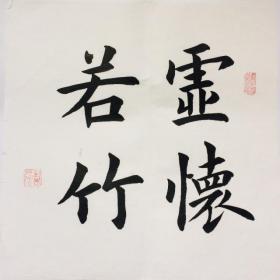 虛懷
若竹